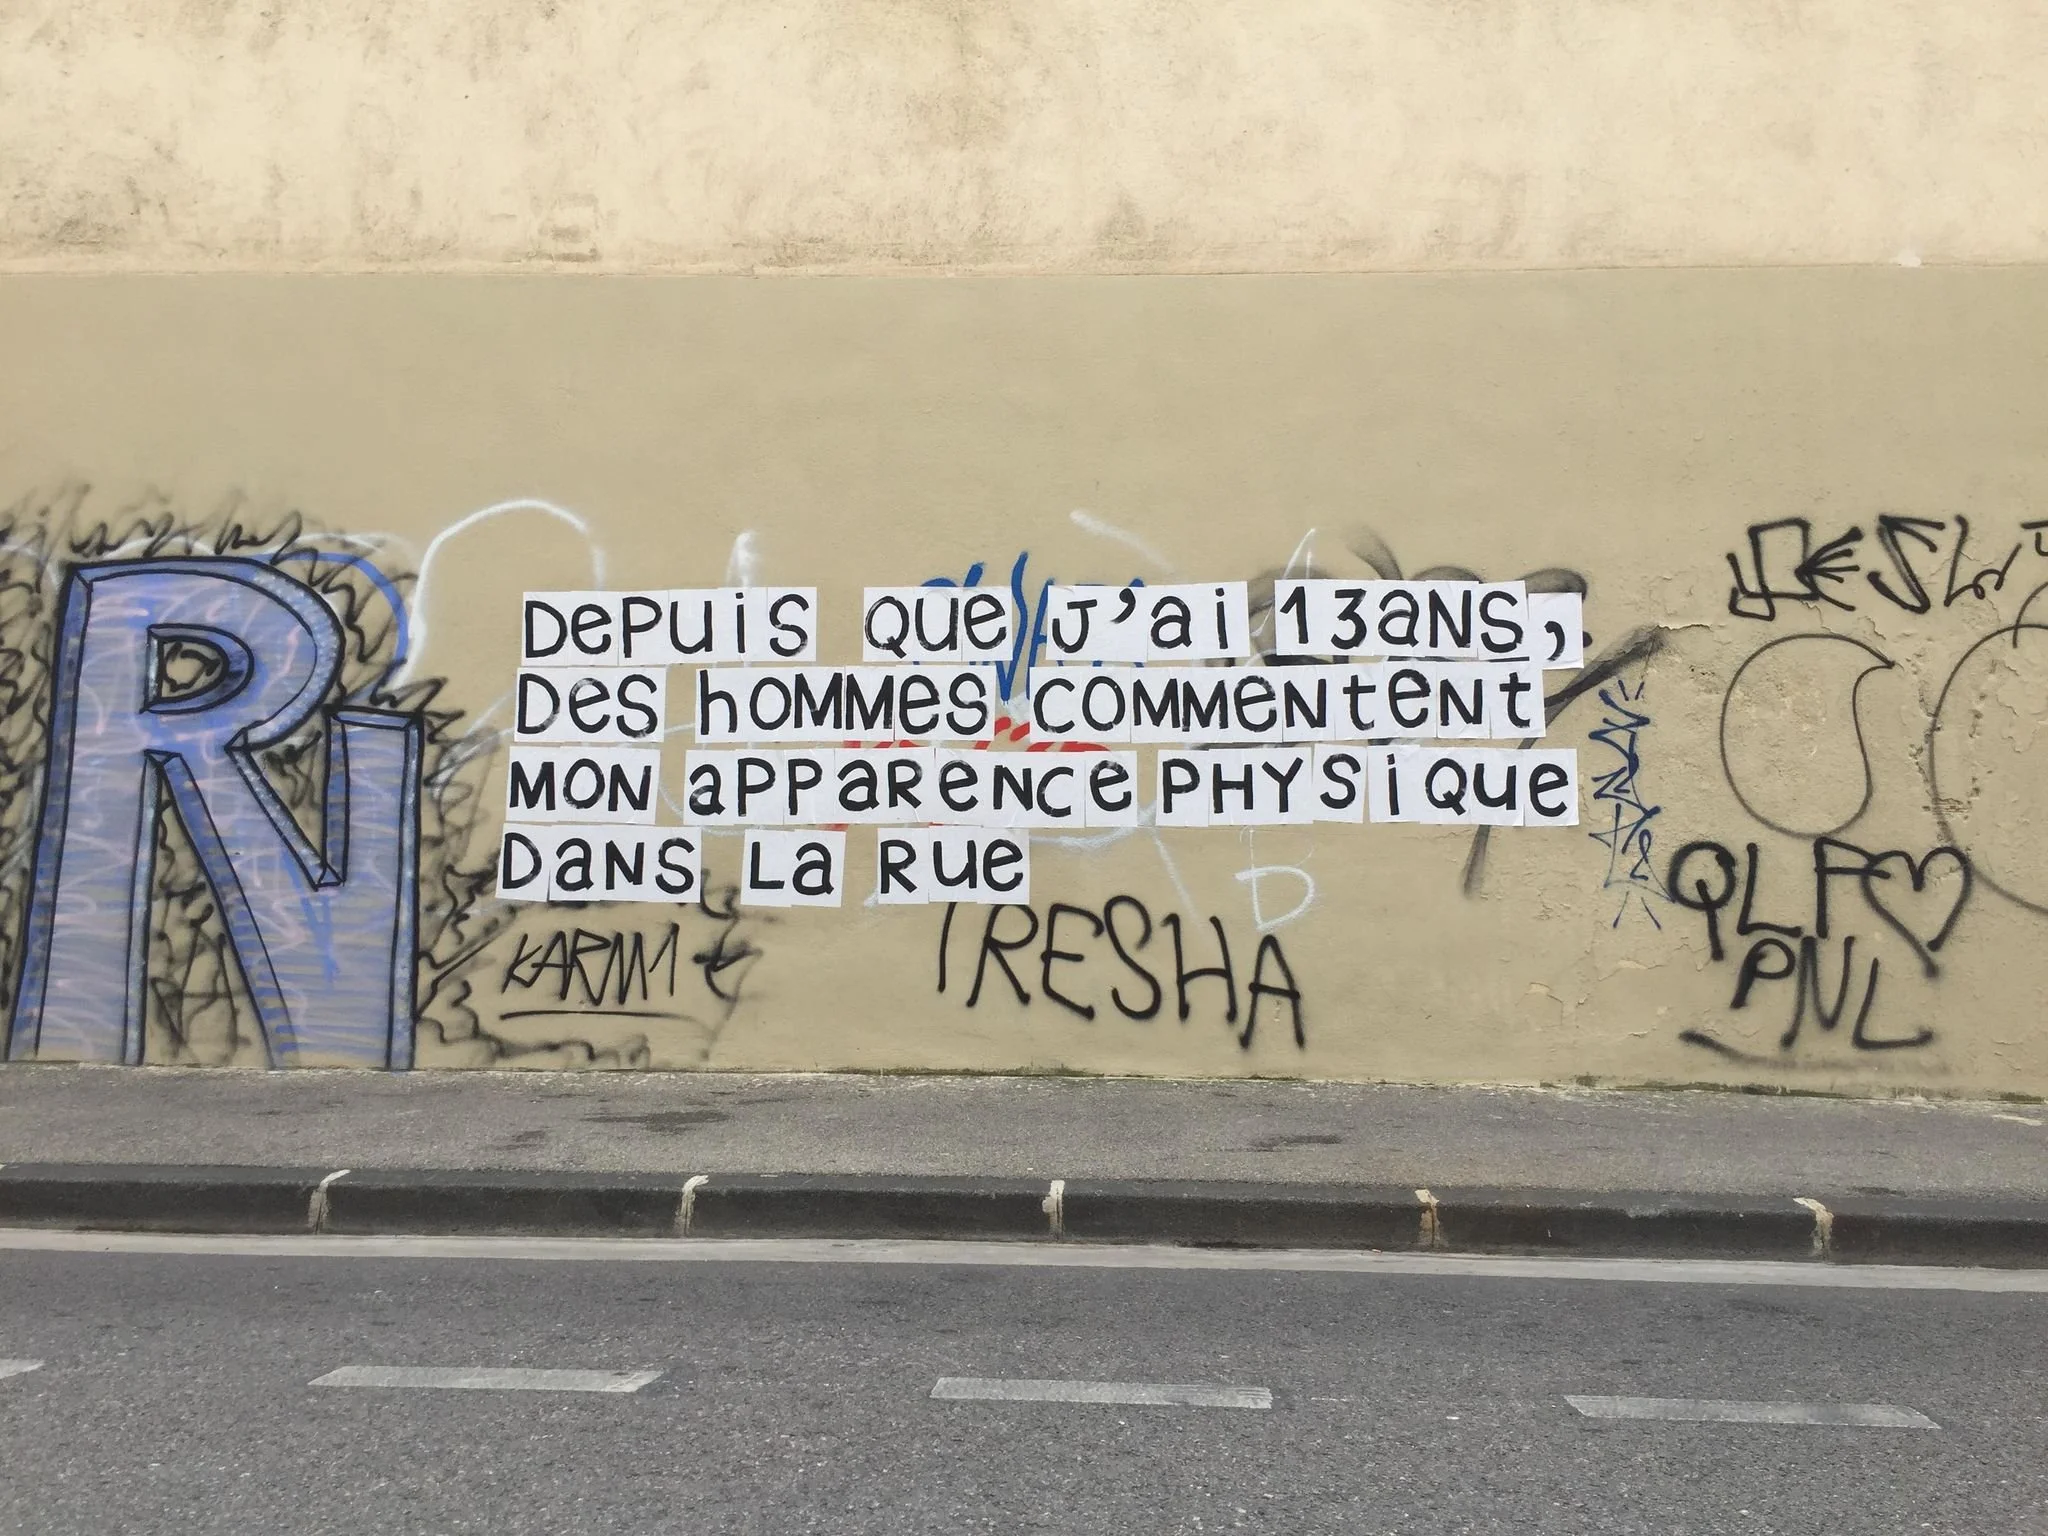 DePUiS QUe J'ai 13aNS,
DeS hOMMeS COMMeNteNt
MON aPPaReNCe PHYSiQUe
DaNS La RUe
KARM1
TRESHA
QLF
PNL